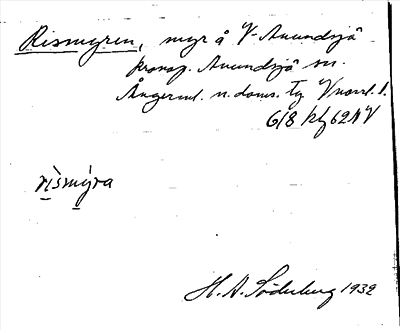 Rismyren, myr å V. Anundsjö
kronop. Anundsjö sn.
Ångerml. n. doms. Tg Vnorrl. l.
618 kf 62 NV
rismýra
H. A. Söderberg 1932